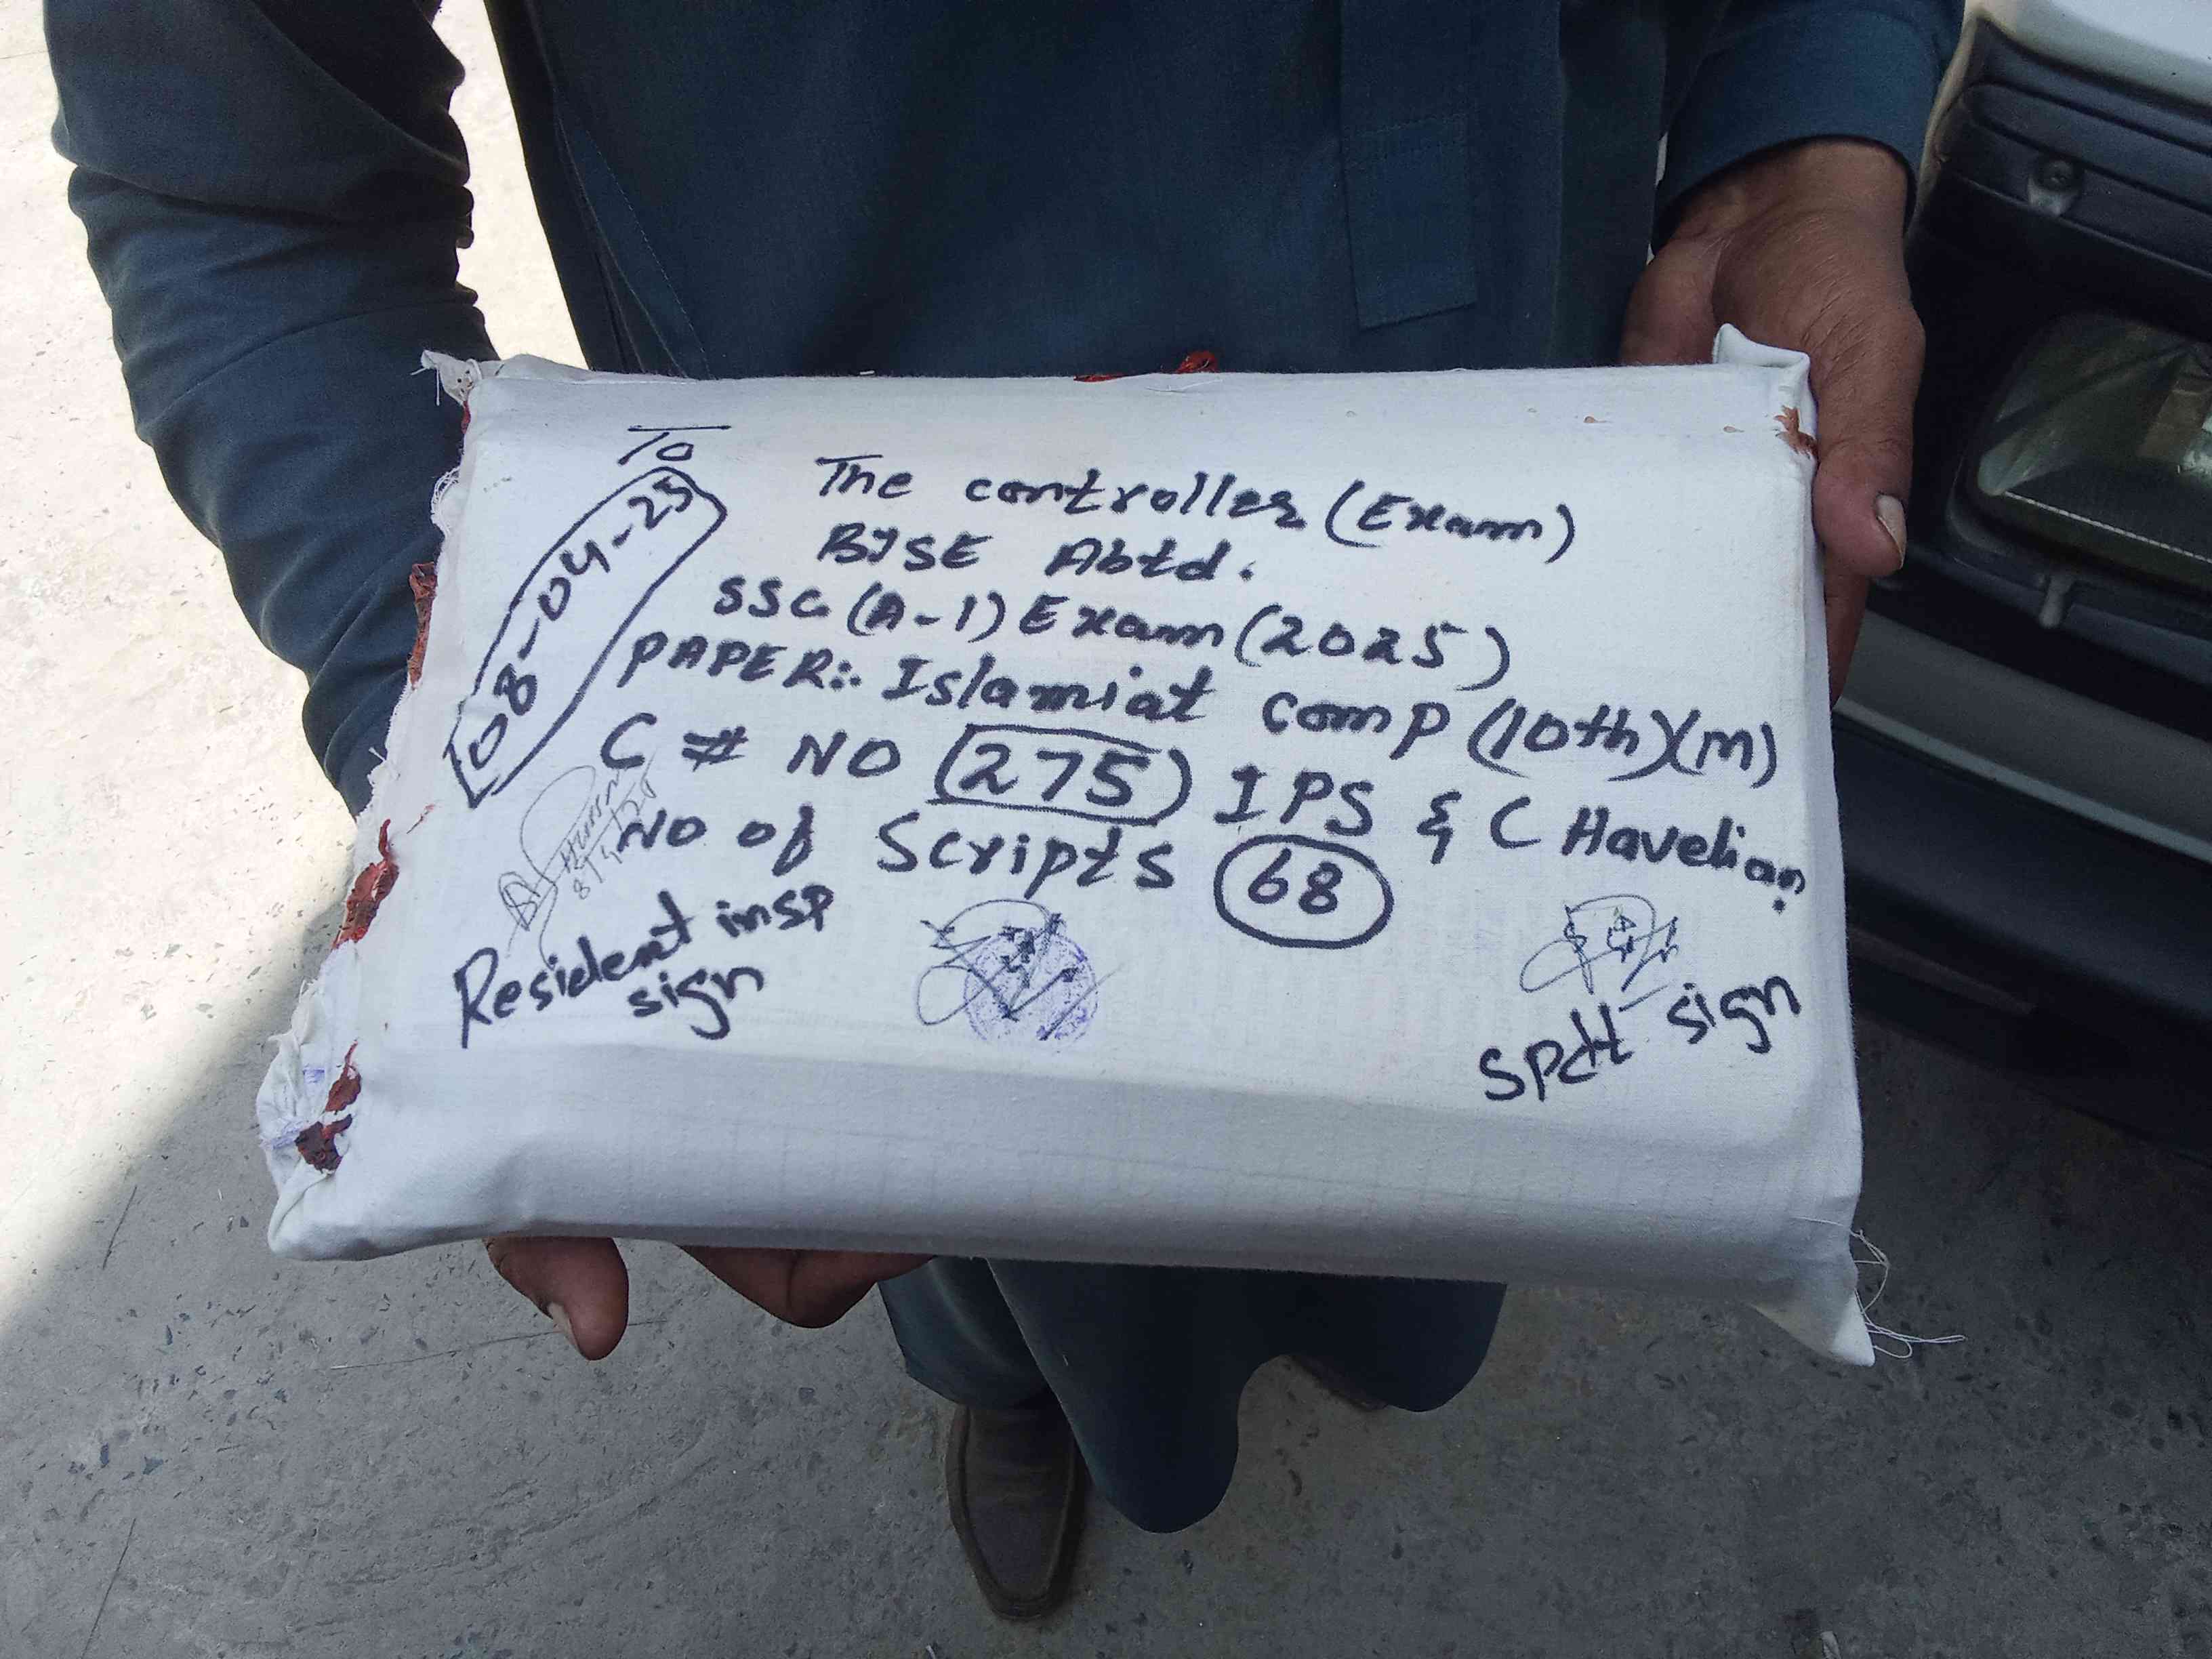 To
08-04-25
The controller (Exam)
BISE Abtd.
SSC (A-1) Exam (2025)
PAPER:- Islamiat comp (10th) (M)
C # NO 275 IPS & C Havelian.
NO of Scripts 68
Resident insp
sign
Spdtt sign